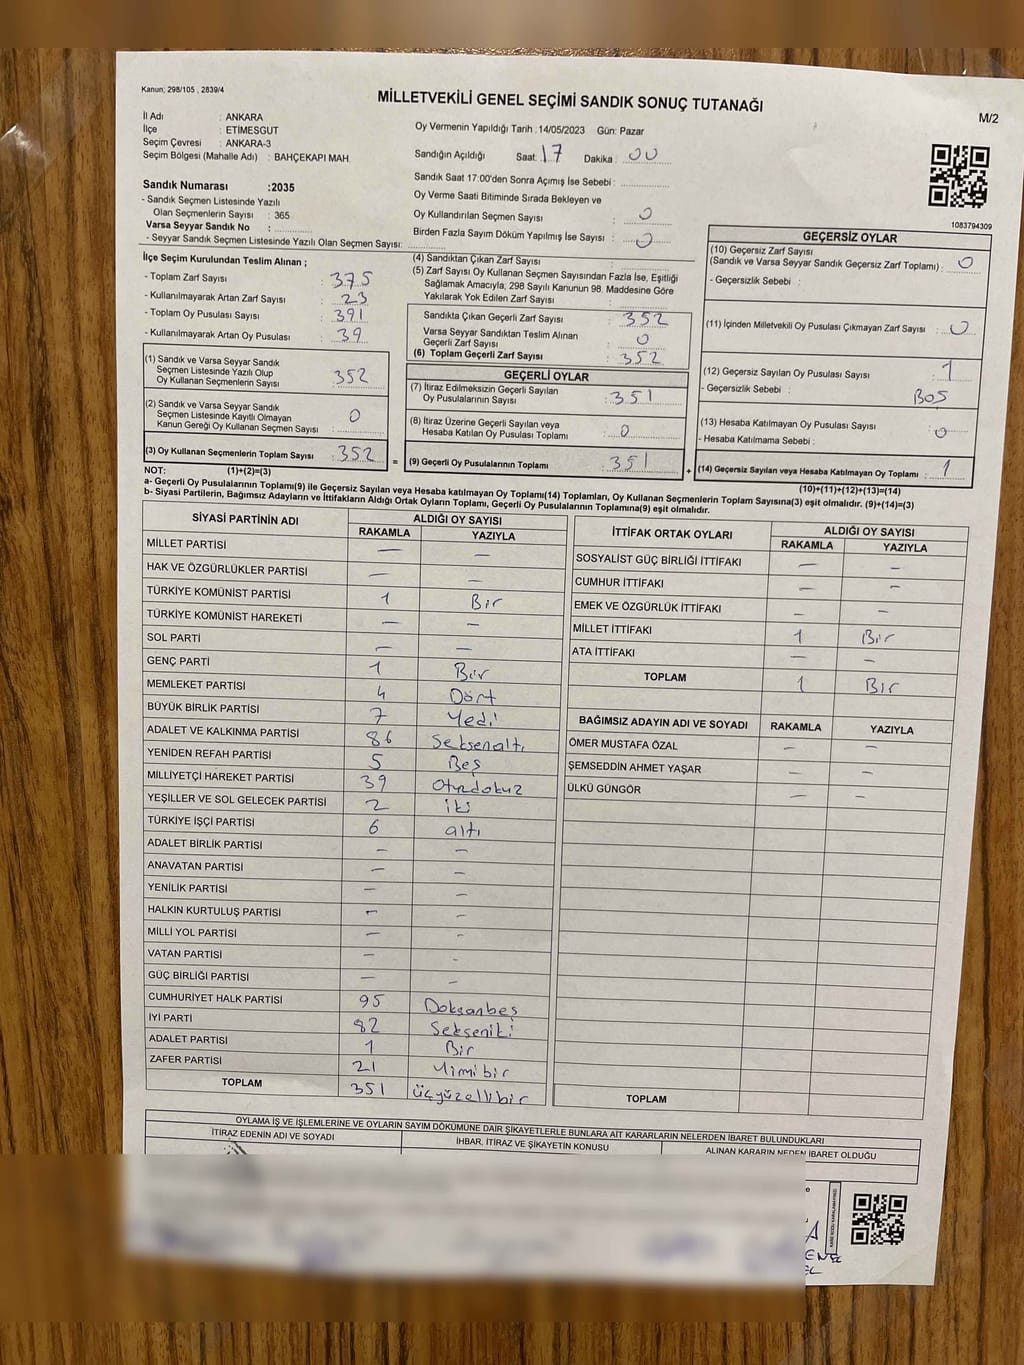 Kanun; 298/105 , 2839/4
MİLLETVEKİLİ GENEL SEÇİMİ SANDIK SONUÇ TUTANAĞI
M/2
İl Adı : ANKARA
İlçe : ETİMESGUT
Seçim Çevresi : ANKARA-3
Seçim Bölgesi (Mahalle Adı) : BAHÇEKAPI MAH.
Oy Vermenin Yapıldığı Tarih : 14/05/2023 Gün: Pazar
Sandığın Açıldığı Saat: 17 Dakika : 00
Sandık Saat 17:00'den Sonra Açımış İse Sebebi :
Oy Verme Saati Bitiminde Sırada Bekleyen ve
Oy Kullandırılan Seçmen Sayısı : 0
Birden Fazla Sayım Döküm Yapılmış İse Sayısı : 0
Sandık Numarası :2035
- Sandık Seçmen Listesinde Yazılı
Olan Seçmenlerin Sayısı : 365
Varsa Seyyar Sandık No :
- Seyyar Sandık Seçmen Listesinde Yazılı Olan Seçmen Sayısı:
1083794309
İlçe Seçim Kurulundan Teslim Alınan ;
- Toplam Zarf Sayısı : 375
- Kullanılmayarak Artan Zarf Sayısı : 23
- Toplam Oy Pusulası Sayısı : 391
- Kullanılmayarak Artan Oy Pusulası : 39
(1) Sandık ve Varsa Seyyar Sandık
Seçmen Listesinde Yazılı Olup
Oy Kullanan Seçmenlerin Sayısı : 352
(2) Sandık ve Varsa Seyyar Sandık
Seçmen Listesinde Kayıtlı Olmayan
Kanun Gereği Oy Kullanan Seçmen Sayısı : 0
(3) Oy Kullanan Seçmenlerin Toplam Sayısı : 352
(4) Sandıktan Çıkan Zarf Sayısı :
(5) Zarf Sayısı Oy Kullanan Seçmen Sayısından Fazla İse, Eşitliği
Sağlamak Amacıyla, 298 Sayılı Kanunun 98. Maddesine Göre
Yakılarak Yok Edilen Zarf Sayısı :
Sandıkta Çıkan Geçerli Zarf Sayısı : 352
Varsa Seyyar Sandıktan Teslim Alınan
Geçerli Zarf Sayısı : 0
(6) Toplam Geçerli Zarf Sayısı : 352
GEÇERLİ OYLAR
(7) İtiraz Edilmeksizin Geçerli Sayılan
Oy Pusulalarının Sayısı : 351
(8) İtiraz Üzerine Geçerli Sayılan veya
Hesaba Katılan Oy Pusulası Toplamı : 0
= (9) Geçerli Oy Pusulalarının Toplamı : 351
GEÇERSİZ OYLAR
(10) Geçersiz Zarf Sayısı
(Sandık ve Varsa Seyyar Sandık Geçersiz Zarf Toplamı) : 0
- Geçersizlik Sebebi :
(11) İçinden Milletvekili Oy Pusulası Çıkmayan Zarf Sayısı : 0
(12) Geçersiz Sayılan Oy Pusulası Sayısı : 1
- Geçersizlik Sebebi : BOŞ
(13) Hesaba Katılmayan Oy Pusulası Sayısı : 0
- Hesaba Katılmama Sebebi :
+ (14) Geçersiz Sayılan veya Hesaba Katılmayan Oy Toplamı : 1
NOT: (1)+(2)=(3)
(10)+(11)+(12)+(13)=(14)
a- Geçerli Oy Pusulalarının Toplamı(9) ile Geçersiz Sayılan veya Hesaba katılmayan Oy Toplamı(14) Toplamları, Oy Kullanan Seçmenlerin Toplam Sayısına(3) eşit olmalıdır. (9)+(14)=(3)
b- Siyasi Partilerin, Bağımsız Adayların ve İttifakların Aldığı Ortak Oyların Toplamı, Geçerli Oy Pusulalarının Toplamına(9) eşit olmalıdır.
SİYASİ PARTİNİN ADI ALDIĞI OY SAYISI
RAKAMLA YAZIYLA
MİLLET PARTİSİ — —
HAK VE ÖZGÜRLÜKLER PARTİSİ — —
TÜRKİYE KOMÜNİST PARTİSİ 1 Bir
TÜRKİYE KOMÜNİST HAREKETİ — —
SOL PARTİ — —
GENÇ PARTİ 1 Bir
MEMLEKET PARTİSİ 4 Dört
BÜYÜK BİRLİK PARTİSİ 7 Yedi
ADALET VE KALKINMA PARTİSİ 86 Seksenaltı
YENİDEN REFAH PARTİSİ 5 Beş
MİLLİYETÇİ HAREKET PARTİSİ 39 Otuzdokuz
YEŞİLLER VE SOL GELECEK PARTİSİ 2 iki
TÜRKİYE İŞÇİ PARTİSİ 6 altı
ADALET BİRLİK PARTİSİ — —
ANAVATAN PARTİSİ — —
YENİLİK PARTİSİ — —
HALKIN KURTULUŞ PARTİSİ — —
MİLLİ YOL PARTİSİ — —
VATAN PARTİSİ — —
GÜÇ BİRLİĞİ PARTİSİ — —
CUMHURİYET HALK PARTİSİ 95 Doksanbeş
İYİ PARTİ 82 Sekseniki
ADALET PARTİSİ 1 Bir
ZAFER PARTİSİ 21 Yirmibir
TOPLAM 351 üçyüzellibir
İTTİFAK ORTAK OYLARI ALDIĞI OY SAYISI
RAKAMLA YAZIYLA
SOSYALİST GÜÇ BİRLİĞİ İTTİFAKI — —
CUMHUR İTTİFAKI — —
EMEK VE ÖZGÜRLÜK İTTİFAKI — —
MİLLET İTTİFAKI 1 Bir
ATA İTTİFAKI — —
TOPLAM 1 Bir
BAĞIMSIZ ADAYIN ADI VE SOYADI RAKAMLA YAZIYLA
ÖMER MUSTAFA ÖZAL — —
ŞEMSEDDİN AHMET YAŞAR — —
ÜLKÜ GÜNGÖR — —
TOPLAM
OYLAMA İŞ VE İŞLEMLERİNE VE OYLARIN SAYIM DÖKÜMÜNE DAİR ŞİKAYETLERLE BUNLARA AİT KARARLARIN NELERDEN İBARET BULUNDUKLARI
İTİRAZ EDENİN ADI VE SOYADI İHBAR, İTİRAZ VE ŞİKAYETİN KONUSU ALINAN KARARIN NEDEN İBARET OLDUĞU